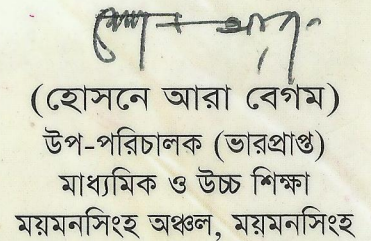 (হোসনে আরা বেগম)
উপ-পরিচালক (ভারপ্রাপ্ত)
মাধ্যমিক ও উচ্চ শিক্ষা
ময়মনসিংহ অঞ্চল, ময়মনসিংহ